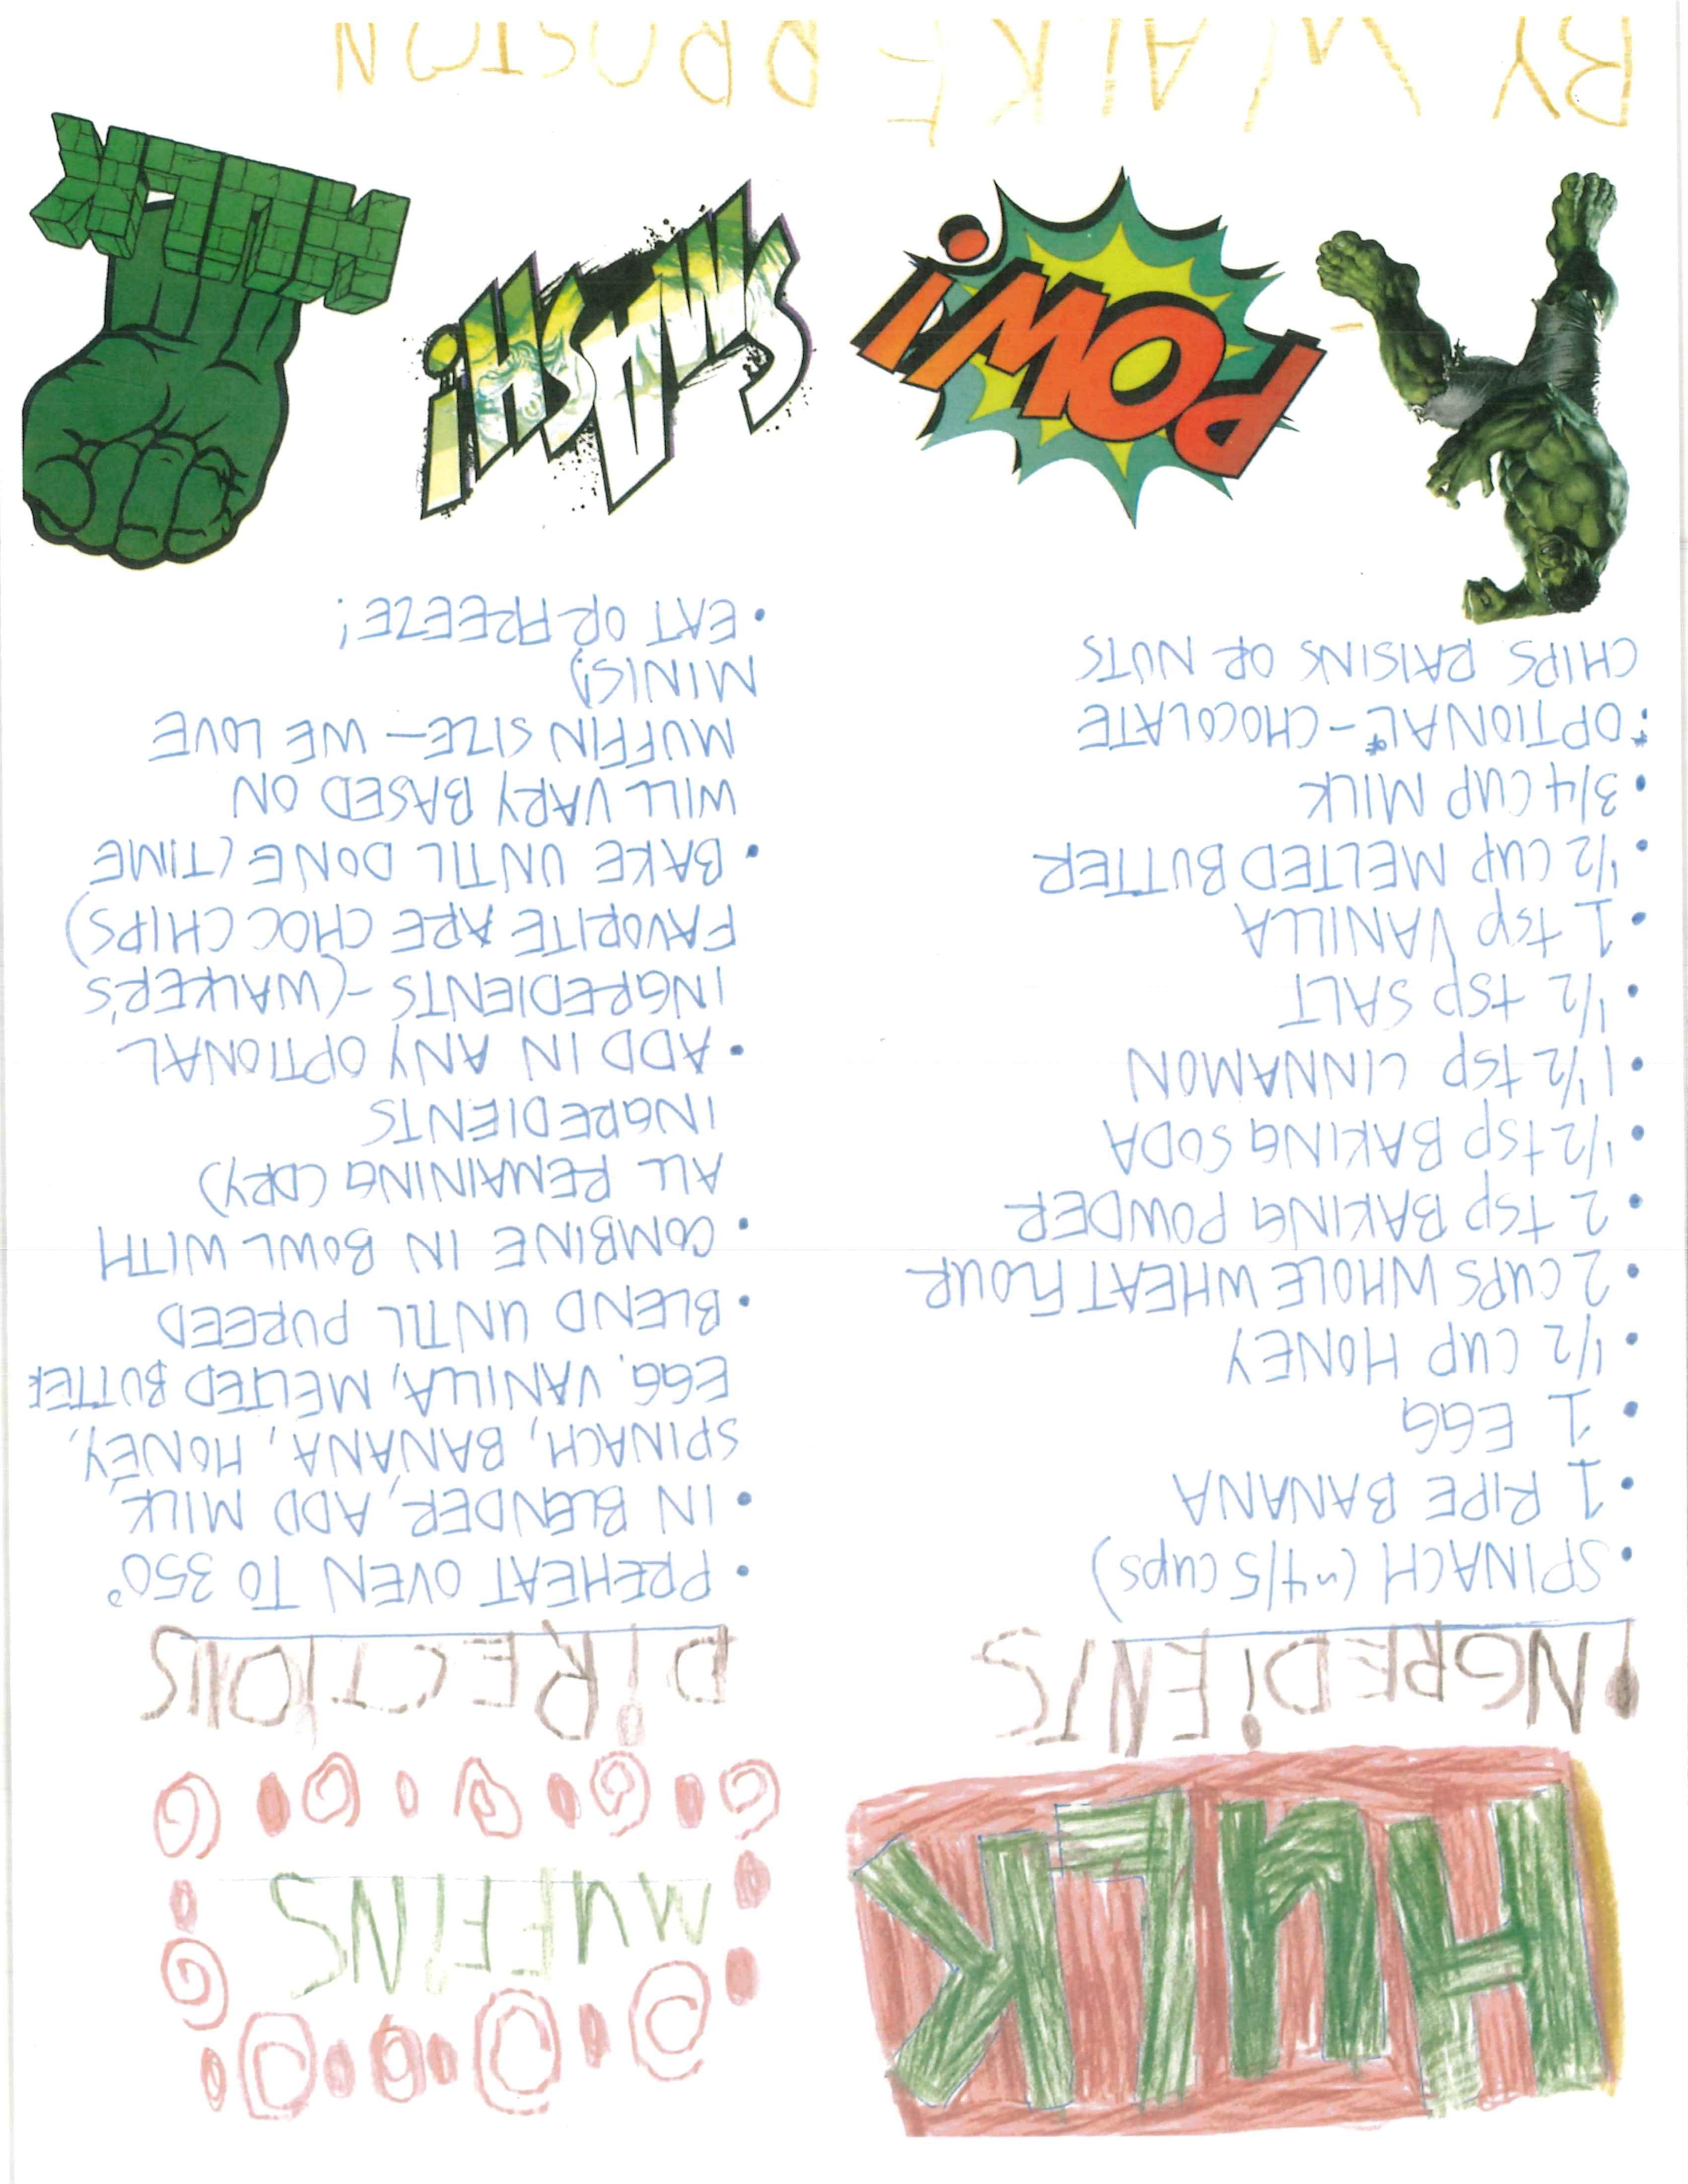 HULK
MUFFINS
INGREDIENTS
• SPINACH (~4/5 cups)
• 1 RIPE BANANA
• 1 EGG
• 1/2 CUP HONEY
• 2 CUPS WHOLE WHEAT FLOUR
• 2 tsp BAKING POWDER
• 1/2 tsp BAKING SODA
• 1 1/2 tsp CINNAMON
• 1/2 tsp SALT
• 1 tsp VANILLA
• 1/2 CUP MELTED BUTTER
• 3/4 CUP MILK
• OPTIONAL - CHOCOLATE
CHIPS RAISINS OR NUTS
DIRECTIONS
• PREHEAT OVEN TO 350°
• IN BLENDER, ADD MILK,
SPINACH, BANANA, HONEY,
EGG, VANILLA, MELTED BUTTER
• BLEND UNTIL PUREED
• COMBINE IN BOWL WITH
ALL REMAINING (DRY)
INGREDIENTS
• ADD IN ANY OPTIONAL
INGREDIENTS - (WALKER'S
FAVORITE ARE CHOC CHIPS)
• BAKE UNTIL DONE (TIME
WILL VARY BASED ON
MUFFIN SIZE - WE LOVE
MINIS!)
• EAT OR FREEZE!
POW!
SMASH!
HULK
BY WALKE DROSTON